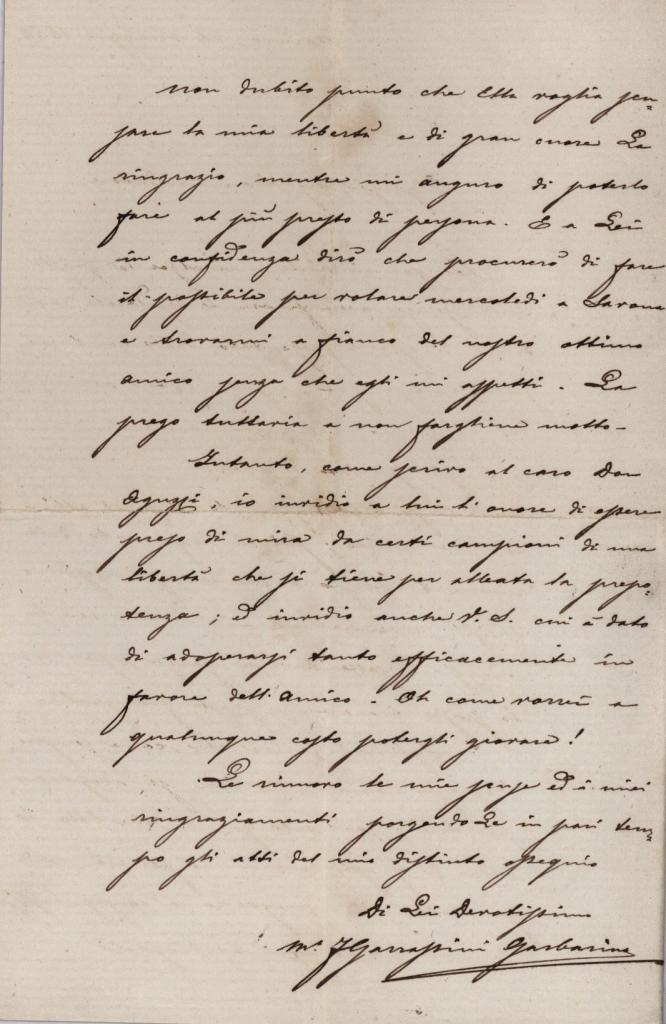 non dubito punto che Ella voglia scu-
sare la mia libertà e di gran cuore La
ringrazio, mentre mi auguro di poterlo
fare al più presto di persona. E a Lei
in confidenza dirò che procurerò di fare
il possibile per volare mercoledì a Savona
e trovarmi a fianco del nostro ottimo
amico senza che egli mi aspetti. La
prego tuttavia a non fargliene motto.
Intanto, come scrivo al caro Don
io invidio a lui l'onore di essere
preso di mira da certi campioni di una
libertà che si tiene per alleata la prepo-
tenza; ed invidio anche V. S. cui è dato
di adoperarsi tanto efficacemente in
favore dell'amico. Oh come vorrei a
qualunque costo potergli giovare!
Le rinnovo le mie scuse ed i miei
ringraziamenti porgendoLe in pari tem-
po gli atti del mio distinto ossequio
Di Lei Devotissimo